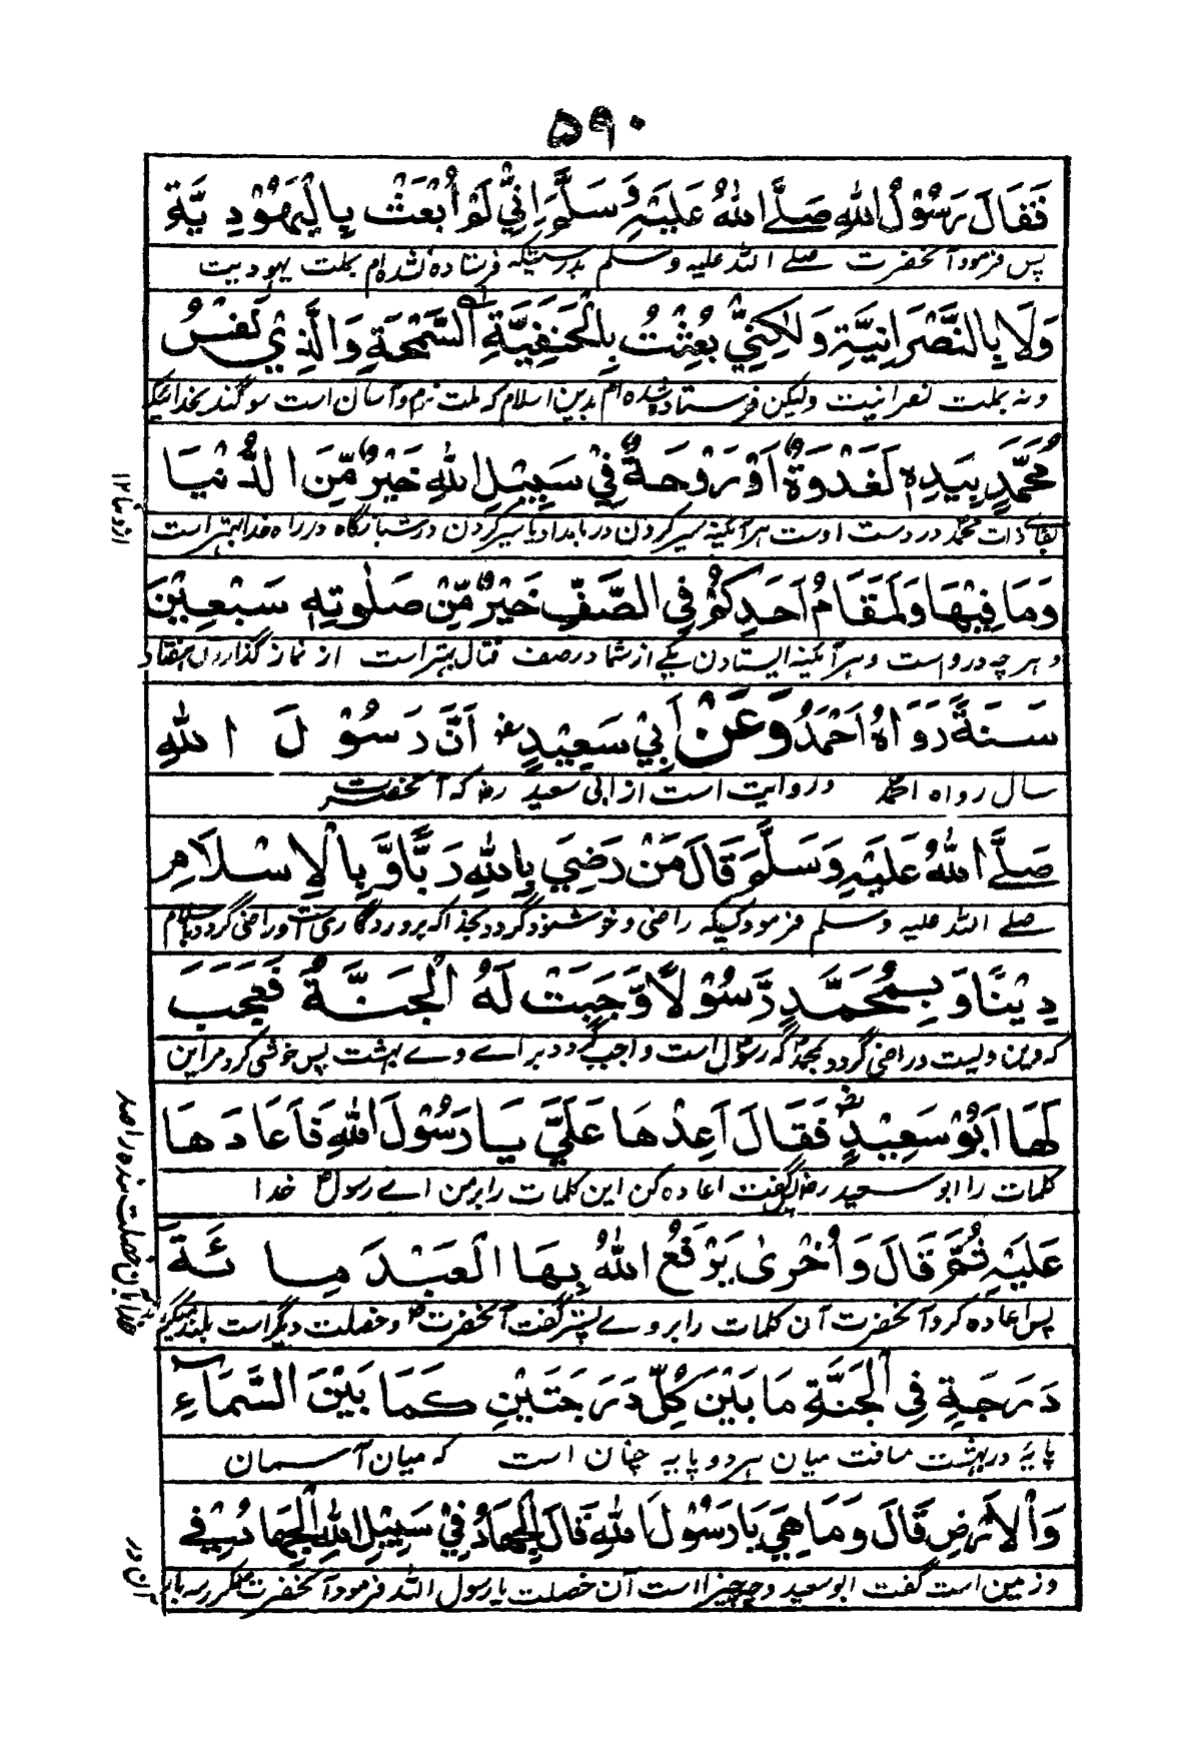 ۵۹۰
فَقَالَ رَسُوْلُ اللهِ صَلَّے اللهُ عَلَيْهِ وَسَلَّمَ اِنِّيْ لَمْ اُبْعَثْ بِالْيَهُوْدِيَّةِ
پس فرمود آنحضرت صلے اللہ علیہ وسلم بدرستیکہ فرستادہ نشدہ ام بملت یہودیت
وَلَا بِالنَّصْرَانِيَّةِ وَلٰكِنِّيْ بُعِثْتُ بِالْحَنِيْفِيَّةِ السَّمْحَةِ وَالَّذِيْ نَفْسُ
ونہ بملت نصرانیت ولیکن فرستادہ شدہ ام بدین اسلام کہ ملت نرم وآسان است سوگند بخدائیکہ
مُحَمَّدٍ بِيَدِهٖ لَغَدْوَةٌ اَوْ رَوْحَةٌ فِيْ سَبِيْلِ اللهِ خَيْرٌ مِّنَ الدُّنْيَا
بقاے ذات محمد در دست اوست ہر آئینہ سیر کردن در بامداد یا سیر کردن در شبانگاہ در راہ خدا بہتر است
از دنیا ۱۲
وَمَا فِيْهَا وَلَمَقَامُ اَحَدِكُمْ فِي الصَّفِّ خَيْرٌ مِّنْ صَلٰوتِهٖ سَبْعِيْنَ
و ہر چہ در و است و ہر آئینہ ایستادن یکے از شما در صف قتال بہتر است از نماز گذاردن ہفتاد
سَنَةً رَوَاهُ اَحْمَدُ وَعَنْ اَبِيْ سَعِيْدٍ اَنَّ رَسُوْلَ اللهِ
سال رواہ احمد و روایت است از ابی سعید رض کہ آنحضرت
صَلَّے اللهُ عَلَيْهِ وَسَلَّمَ قَالَ مَنْ رَضِيَ بِاللهِ رَبًّا وَّ بِالْاِسْلَامِ
صلے اللہ علیہ وسلم فرمود کسیکہ راضی و خوشنود گردد بخدا کہ پروردگار است وراضی گردد باسلام
دِيْنًا وَ بِمُحَمَّدٍ رَّسُوْلًا وَّجَبَتْ لَهُ الْجَنَّةُ فَعَجِبَ
کہ دین ویست و راضی گردد بمحمد کہ رسول است واجب گردد براے وے بہشت پس خوشی کرد مر این
لَهَا اَبُوْ سَعِيْدٍ فَقَالَ اَعِدْهَا عَلَيَّ يَا رَسُوْلَ اللهِ فَاَعَادَهَا
کلمات را ابو سعید رض پس گفت اعادہ کن این کلمات را بر من اے رسول خدا
عَلَيْهِ ثُمَّ قَالَ وَاُخْرٰى يَرْفَعُ اللهُ بِهَا الْعَبْدَ مِائَةَ
پس اعادہ کرد آنحضرت آن کلمات را بر وے پستر گفت آنحضرت و خصلت دیگر است بلند میگرداند
خدا بآن خصلت بندہ را صد
دَرَجَةٍ فِي الْجَنَّةِ مَا بَيْنَ كُلِّ دَرَجَتَيْنِ كَمَا بَيْنَ السَّمَاءِ
پایۂ در بہشت مسافت میان ہر دو پایہ چنان است کہ میان آسمان
وَالْاَرْضِ قَالَ وَمَا هِيَ يَا رَسُوْلَ اللهِ قَالَ الْجِهَادُ فِيْ سَبِيْلِ اللهِ الْجِهَادُ فِے
و زمین است گفت ابو سعید و چہ چیز است آن خصلت یا رسول اللہ فرمود آنحضرت مکرر سہ بار
آن در